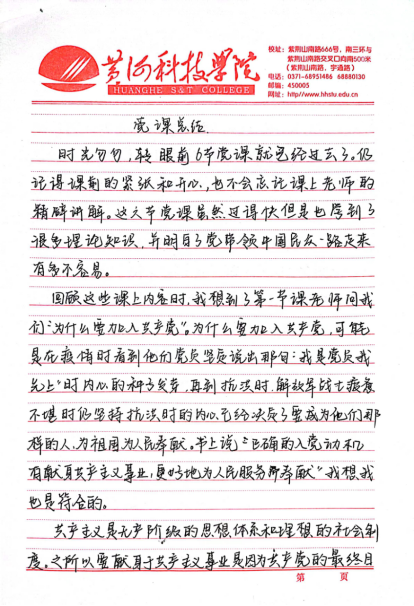 黄河科技学院
HUANGHE S&T COLLEGE
校址：紫荆山南路666号，南三环与
紫荆山南路交叉口向南500米
（紫荆山南路，宇通路）
电话：0371-68951486 68880130
邮编：450005
网址：http://www.hhstu.edu.cn
党课总结
时光匆匆，转眼间6节党课就已经过去了。仍
记得课前的紧张和开心，也不会忘记课上老师的
精辟讲解。这六节党课虽然过得快但是也学到了
很多理论知识，并明白了党带领中国民众一路走来
有多不容易。
回顾这些课上内容时，我想到了第一节课老师问我
们：“为什么要加入共产党”。为什么要加入共产党，可能
是在疫情时看到他们党员坚定说出那句：“我是党员我
先上”时内心的种子发芽，再到抗洪时，解放军战士疲惫
不堪时仍坚持抗洪时的内心已经决定了要成为他们那
样的人，为祖国为人民奉献。书上说：“正确的入党动机
有献身共产主义事业，更好地为人民服务而奉献”我想我
也是符合的。
共产主义是无产阶级的思想体系和理想的社会制
度。之所以要献身于共产主义事业是因为共产党的最终目
第 页